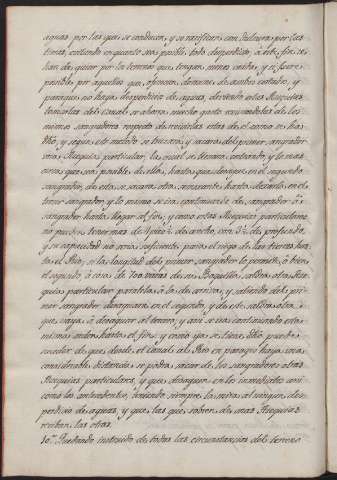 aguas por las que se conducen, y se rarifican con dulzura por las
tierras, evitando en quanto sea posible, todo desperdicio, á este fin, se
han de guiar por los terrenos que tengan menos caida, y si fuere
posible por aquellas que ofrezcan derrames de ambos costados, y
paraque no haya desperdicio de aguas, dividiendo estas Hazequias
tomadas del Canal, se ahorra mucho gasto reuniendolas de los
mismos sangradores respecto de
mo, y segun este metodo se tomara, y sacara del primer sangrador
una Hazequia particular, la cual se llevara, costeando, y lo mas
cerca que sea posible de ello, hasta que desague en el segundo
sangrador, de este se sacara otra, semejante hasta dexarla en el
tercer sangrador y lo mismo se ira continuando de sangrador á
sangrador hasta llegar al fin, y como estas Hazequias particulares
no pueden tener mas de 4 pies de ancho, con 3 de profundo,
y su capacidad no seria suficiente, para el riego de las tierras has
ta el Rio, si la longitud del primer sangrador lo permite, ó bien
el segundo, á cosa de 700 varas de su Boquilla, saldra otra Haze
quia particular paralela á la de arriva, y saliendo del pri
mer sangrador desaguara en el segundo, y de este saldra otra
que vaya, á desaguar al tercero, y asi se ira continuando esta
misma orden, hasta el fin, y como ya se tiene dicho puede
suceder de que, desde el Canal al Rio en parages haya una
considerable distancia, se podra sacar de los sangradores otras
Hazequias particulares, y que desaguen en los inmediatos asi
como las antecedentes, teniendo siempre la mira al ningun des
perdicio de aguas, y que las que sobren de unas Hazequias
reciban las otras.
10.º Quedando instruido de todas las circunstancias del terreno